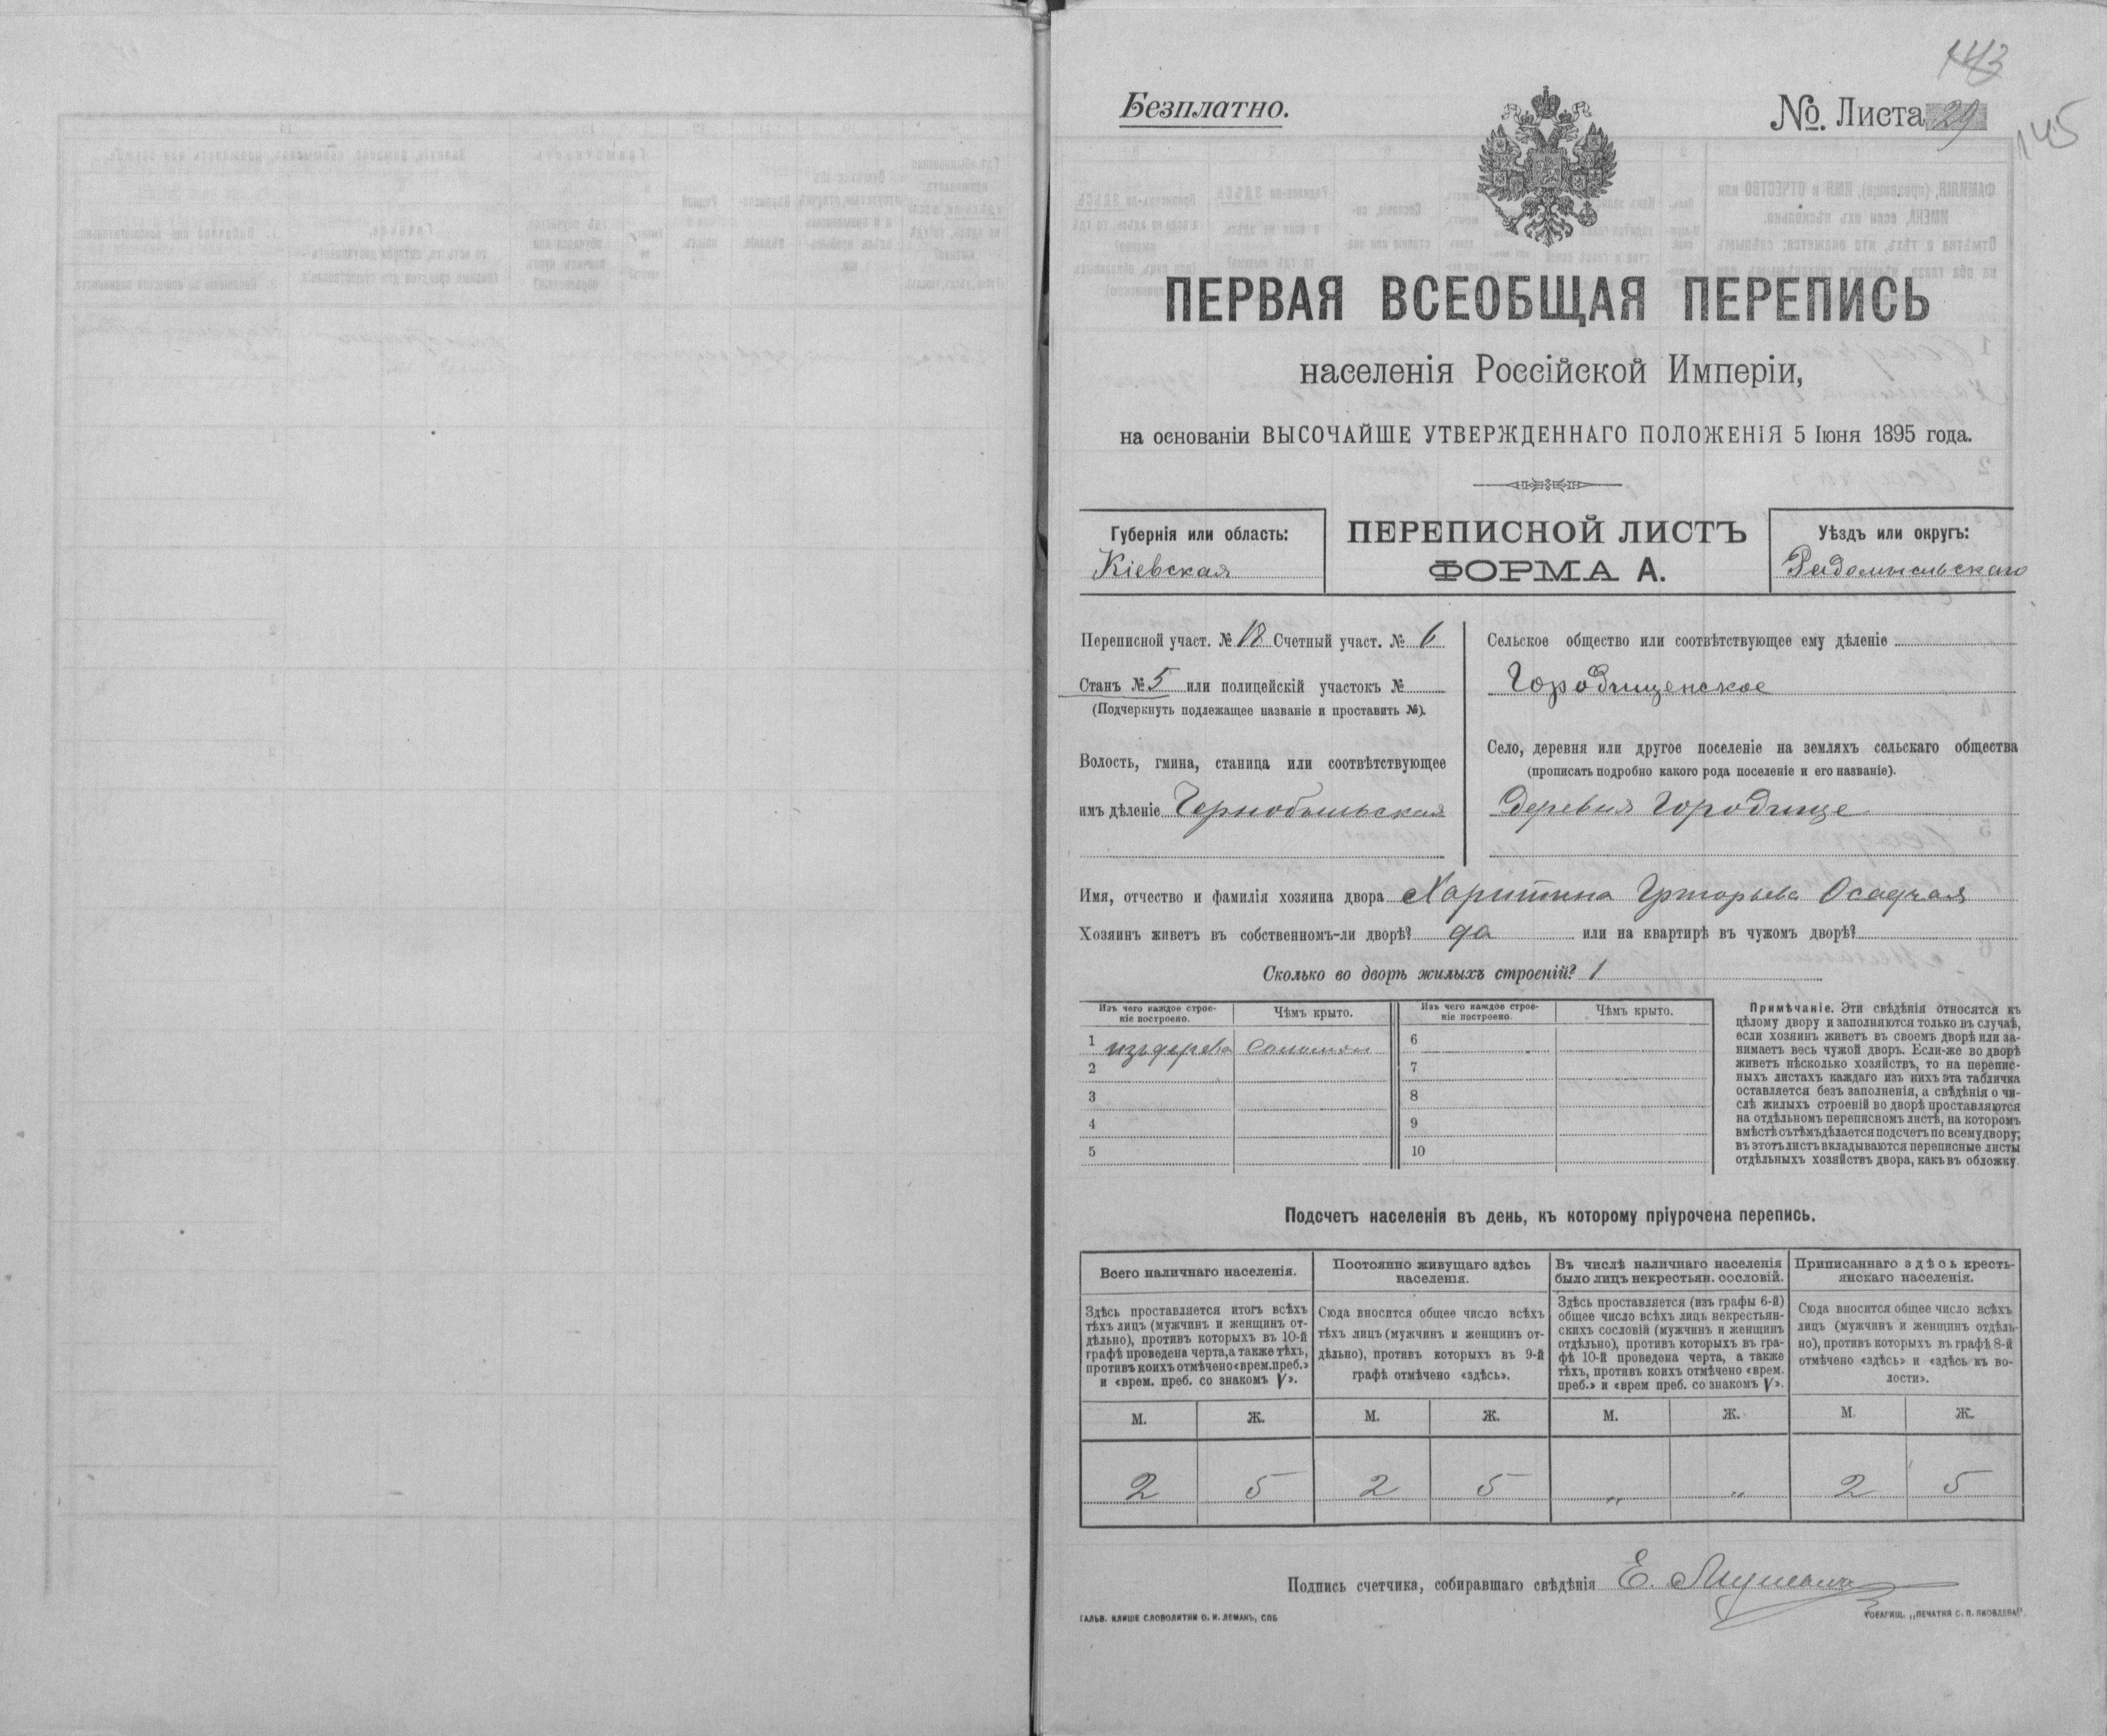 143
Безплатно.
№ Листа 29
145
ПЕРВАЯ ВСЕОБЩАЯ ПЕРЕПИСЬ
населенія Россійской Имперіи,
на основаніи ВЫСОЧАЙШЕ УТВЕРЖДЕННАГО ПОЛОЖЕНІЯ 5 Іюня 1895 года.
Губернія или область:
Кіевская
ПЕРЕПИСНОЙ ЛИСТЪ
ФОРМА А.
Уѣздъ или округъ:
Радомысльскаго
Переписной участ. № 18 Счетный участ. № 6
Станъ № 5 или полицейскій участокъ №
(Подчеркнуть подлежащее названіе и проставить №).
Волость, гмина, станица или соотвѣтствующее
имъ дѣленіе Чернобыльская
Сельское общество или соотвѣтствующее ему дѣленіе
Городищенское
Село, деревня или другое поселеніе на земляхъ сельскаго общества
(прописать подробно какого рода поселеніе и его названіе).
Деревня Городище
Имя, отчество и фамилія хозяина двора Харитина Григорьева Осадчая
Хозяинъ живетъ въ собственномъ-ли дворѣ? да или на квартирѣ въ чужомъ дворѣ?
Сколько во дворѣ жилыхъ строеній? 1
Изъ чего каждое строе-
ніе построено.
Чѣмъ крыто.
Изъ чего каждое строе-
ніе построено.
Чѣмъ крыто.
1 изъ дерева Соломои 6
2 7
3 8
4 9
5 10
Примѣчаніе. Эти свѣдѣнія относятся къ
цѣлому двору и заполняются только въ случаѣ,
если хозяинъ живетъ въ своемъ дворѣ или за-
нимаетъ весь чужой дворъ. Если-же во дворѣ
живетъ нѣсколько хозяйствъ, то на перепис-
ныхъ листахъ каждаго изъ нихъ эта табличка
оставляется безъ заполненія, а свѣдѣнія о чи-
слѣ жилыхъ строеній во дворѣ проставляются
на отдѣльномъ переписномъ листѣ, на которомъ
вмѣстѣ съ тѣмъ дѣлается подсчетъ по всему двору;
въ этотъ листъ вкладываются переписные листы
отдѣльныхъ хозяйствъ двора, какъ въ обложку.
Подсчетъ населенія въ день, къ которому пріурочена перепись.
Всего наличнаго населенія.
Здѣсь проставляется итогъ всѣхъ
тѣхъ лицъ (мужчинъ и женщинъ от-
дѣльно), противъ которыхъ въ 10-й
графѣ проведена черта, а также тѣхъ,
противъ коихъ отмѣчено «врем. преб.»
и «врем. преб. со знакомъ V».
Постоянно живущаго здѣсь
населенія.
Сюда вносится общее число всѣхъ
тѣхъ лицъ (мужчинъ и женщинъ от-
дѣльно), противъ которыхъ въ 9-й
графѣ отмѣчено «здѣсь».
Въ числѣ наличнаго населенія
было лицъ некрестьян. сословій.
Здѣсь проставляется (изъ графы 6-й)
общее число всѣхъ лицъ некрестьян-
скихъ сословій (мужчинъ и женщинъ
отдѣльно), противъ которыхъ въ гра-
фѣ 10-й проведена черта, а также
тѣхъ, противъ коихъ отмѣчено «врем.
преб.» и «врем преб. со знакомъ V».
Приписаннаго здѣсь кресть-
янскаго населенія.
Сюда вносится общее число всѣхъ
лицъ (мужчинъ и женщинъ отдѣль-
но), противъ которыхъ въ графѣ 8-й
отмѣчено «здѣсь» и «здѣсь къ во-
лости».
М. Ж. М. Ж. М. Ж. М. Ж.
2 5 2 5 „ „ 2 5
Подпись счетчика, собиравшаго свѣдѣнія Е.
ГАЛЬВ. КЛИШЕ СЛОВОЛИТНИ О. И. ЛЕМАНЪ, СПБ
ТОВАРИЩ. „ПЕЧАТНЯ С. П. ЯКОВЛЕВА".